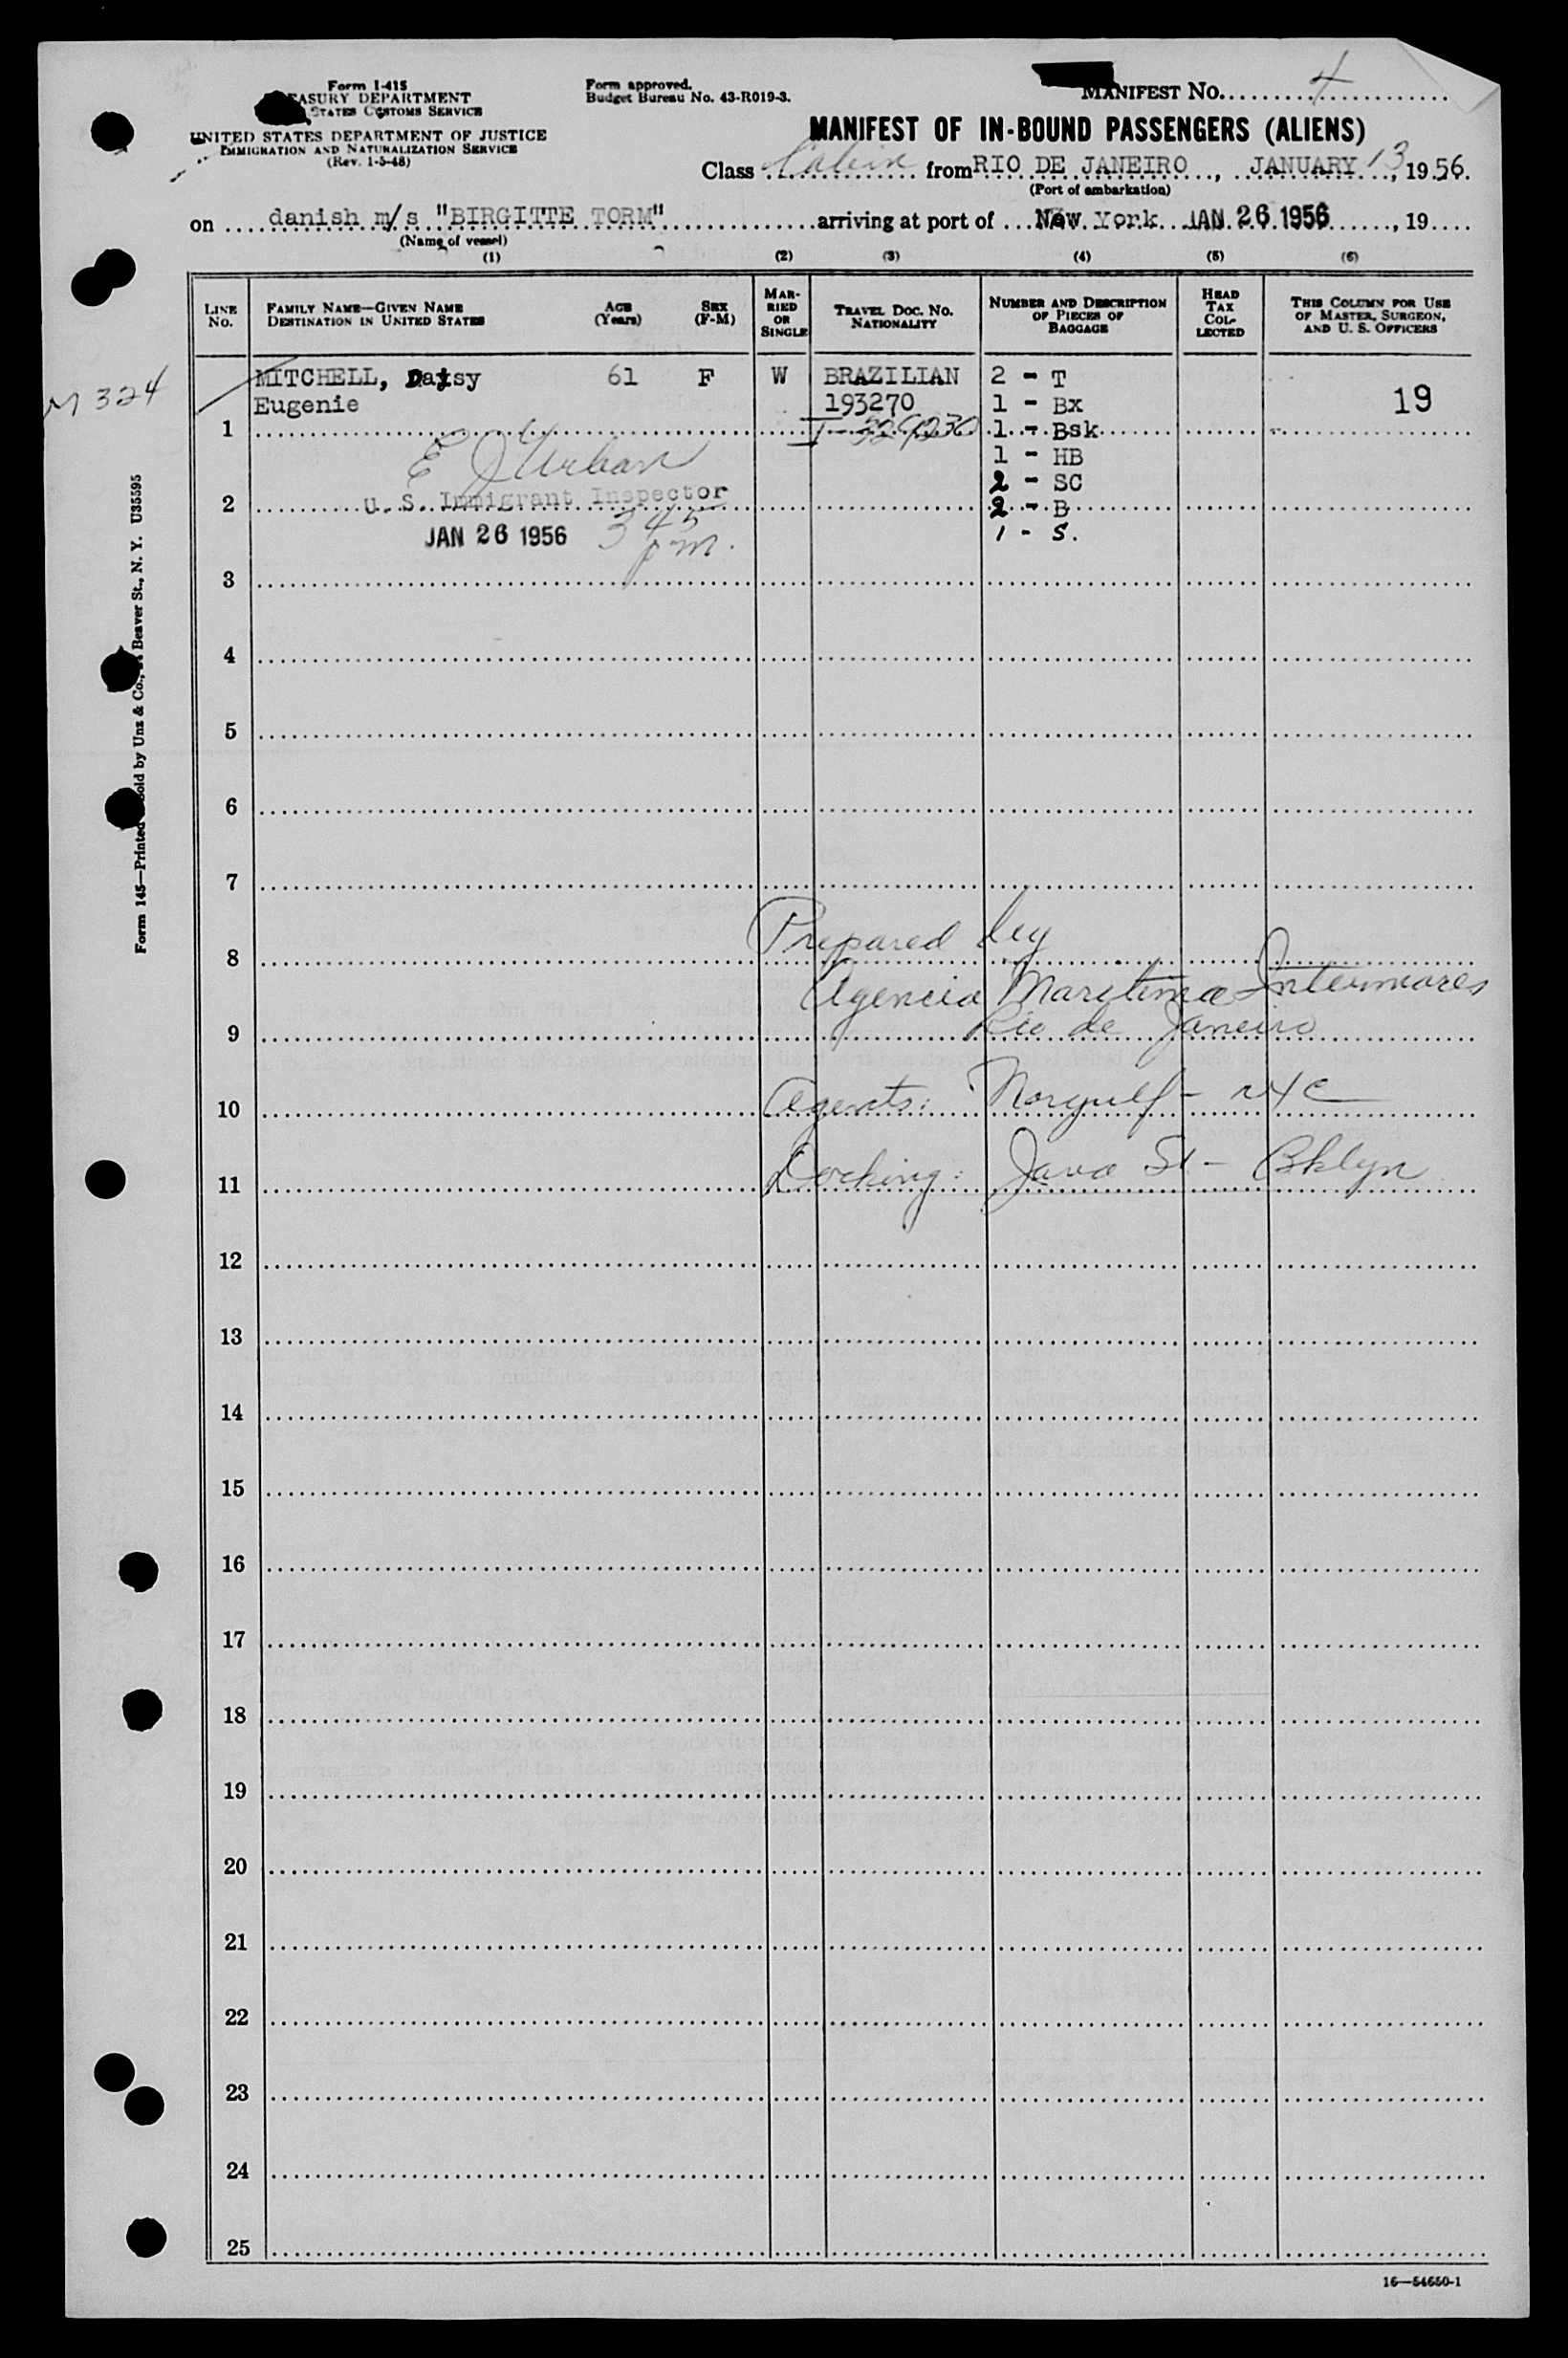 Form I-415
TREASURY DEPARTMENT
STATES CUSTOMS SERVICE
UNITED STATES DEPARTMENT OF JUSTICE
IMMIGRATION AND NATURALIZATION SERVICE
(Rev. 1-5-48)
Form approved.
Budget Bureau No. 43-R019-3.
MANIFEST NO. 4
MANIFEST OF IN-BOUND PASSENGERS (ALIENS)
Class Cabin from RIO DE JANEIRO, JANUARY 13, 1956.
(Port of embarkation)
on danish m/s "BIRGITTE TORM" arriving at port of New York JAN 26 1956, 19
(Name of vessel)
(1) (2) (3) (4) (5) (6)
LINE No.
FAMILY NAME—GIVEN NAME
DESTINATION IN UNITED STATES
AGE (Years)
SEX (F-M)
MARRIED OR SINGLE
TRAVEL DOC. NO.
NATIONALITY
NUMBER AND DESCRIPTION OF PIECES OF BAGGAGE
HEAD TAX COLLECTED
THIS COLUMN FOR USE OF MASTER, SURGEON, AND U. S. OFFICERS
M 324
MITCHELL, Daisy 61 F W BRAZILIAN 2 - T 19
Eugenie 193270 1 - Bx
1 1 - Bsk
1 - HB
E J Urban
2 - SC
2 U. S. Immigrant Inspector 2 - B
JAN 26 1956 3 45 pm. 1 - S.
3
4
5
6
7
8 Prepared by
Agencia Maritima Intermares
9 Rio de Janeiro
10 Agents: Norgulf - NYC
11 Docking: Java St - Bklyn
12
13
14
15
16
17
18
19
20
21
22
23
24
25
Form 145—Printed Sold by Unz & Co., Beaver St., N. Y. U35595
16—54650-1